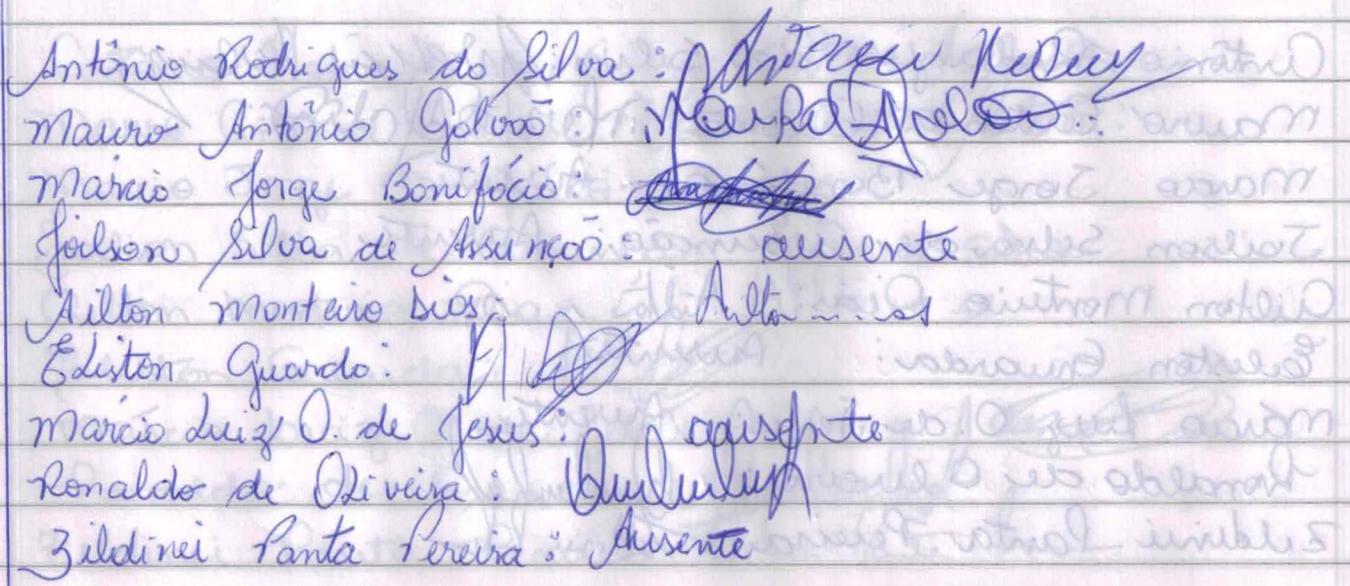 Antônio Rodrigues da Silva:
Mauro Antônio Galvão:
Márcio Jorge Bonifácio:
Joilson Silva de Assunção: ausente
Ailton Monteiro Dias:
Ediston Guarda:
Márcio Luiz O. de Jesus: ausente
Ronaldo de Oliveira:
Zildinei Panta Pereira: Ausente